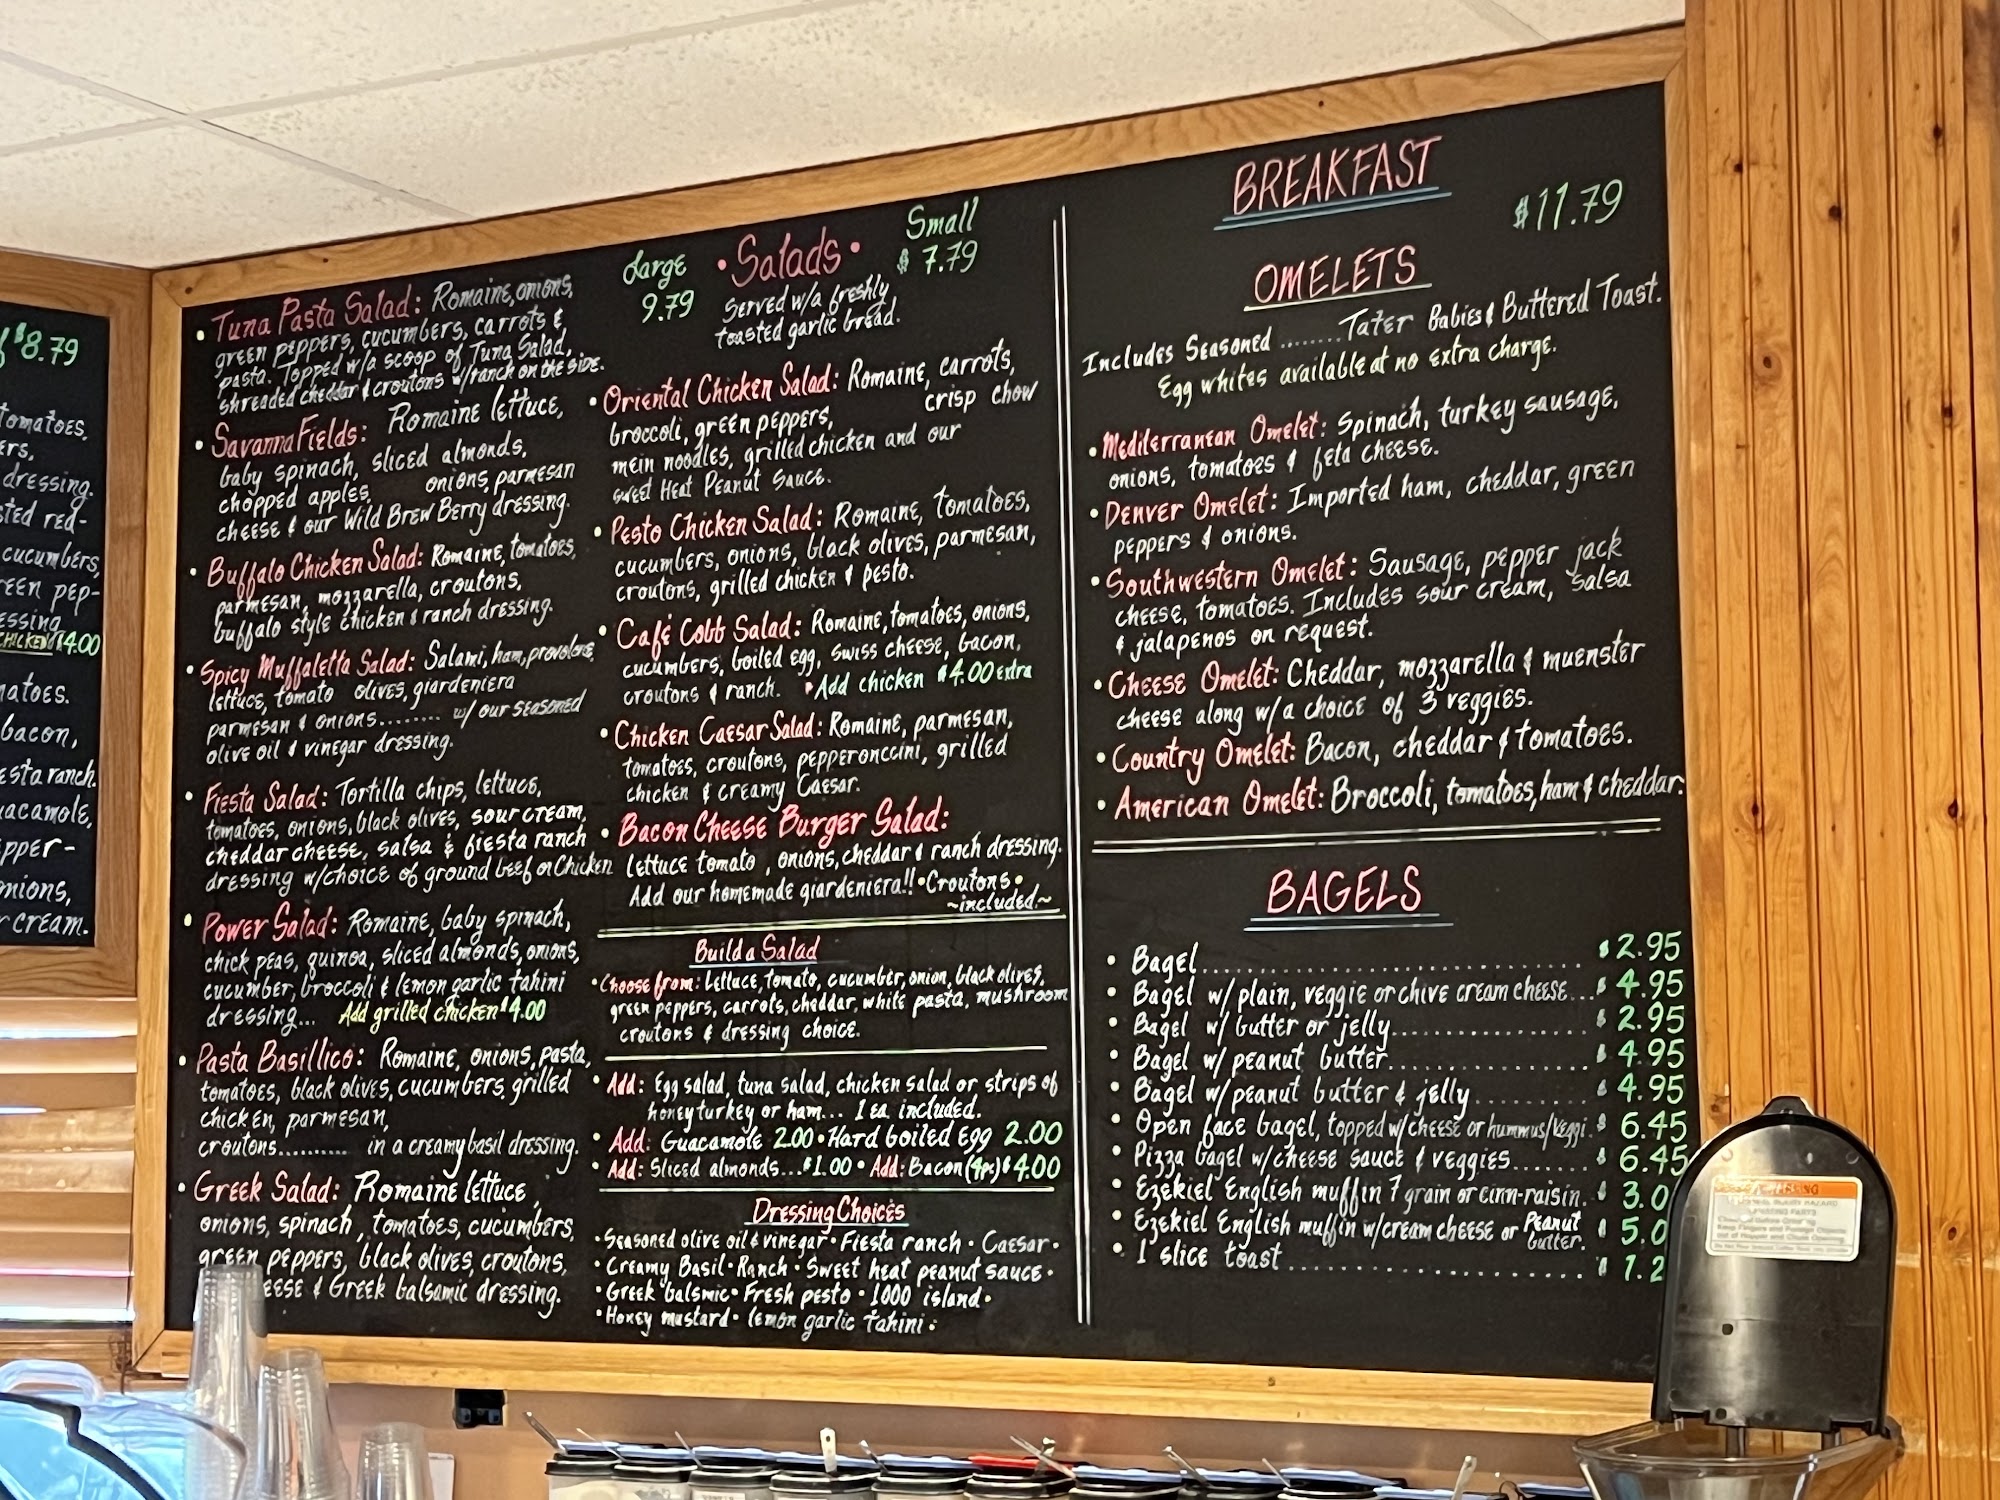 $8.79
tomatoes,
ers,
dressing.
sted red-
cucumbers,
reen pep-
essing
CHICKEN $4.00
matoes.
bacon,
esta ranch.
uacamole,
pper-
onions,
r cream.
Large
9.79
• Salads •
Small
$ 7.79
Served w/a freshly
toasted garlic bread.
• Tuna Pasta Salad: Romaine, onions,
green peppers, cucumbers, carrots &
pasta. Topped w/a scoop of Tuna Salad,
shreaded cheddar & croutons w/ranch on the side.
• Savanna Fields: Romaine lettuce,
baby spinach, sliced almonds,
chopped apples, onions, parmesan
cheese & our Wild Brew Berry dressing.
• Buffalo Chicken Salad: Romaine, tomatoes,
parmesan, mozzarella, croutons,
buffalo style chicken & ranch dressing.
• Spicy Muffaletta Salad: Salami, ham, provolone,
lettuce, tomato olives, giardeniera
parmesan & onions........ w/ our seasoned
olive oil & vinegar dressing.
• Fiesta Salad: Tortilla chips, lettuce,
tomatoes, onions, black olives, sour cream,
cheddar cheese, salsa & fiesta ranch
dressing w/choice of ground beef or Chicken
• Power Salad: Romaine, baby spinach,
chick peas, quinoa, sliced almonds, onions,
cucumber, broccoli & lemon garlic tahini
dressing... Add grilled chicken $4.00
• Pasta Basillico: Romaine, onions, pasta,
tomatoes, black olives, cucumbers, grilled
chicken, parmesan,
croutons.......... in a creamy basil dressing.
• Greek Salad: Romaine lettuce,
onions, spinach, tomatoes, cucumbers,
green peppers, black olives, croutons,
eese & Greek balsamic dressing.
• Oriental Chicken Salad: Romaine, carrots,
broccoli, green peppers, crisp chow
mein noodles, grilled chicken and our
sweet Heat Peanut Sauce.
• Pesto Chicken Salad: Romaine, tomatoes,
cucumbers, onions, black olives, parmesan,
croutons, grilled chicken & pesto.
• Café Cobb Salad: Romaine, tomatoes, onions,
cucumbers, boiled egg, swiss cheese, bacon,
croutons & ranch. • Add chicken $4.00 extra
• Chicken Caesar Salad: Romaine, parmesan,
tomatoes, croutons, pepperonccini, grilled
chicken & creamy Caesar.
• Bacon Cheese Burger Salad:
lettuce tomato, onions, cheddar & ranch dressing.
Add our homemade giardeniera!! • Croutons •
~included~
Build a Salad
• Choose from: Lettuce, tomato, cucumber, onion, black olives,
green peppers, carrots, cheddar, white pasta, mushroom
croutons & dressing choice.
• Add: Egg salad, tuna salad, chicken salad or strips of
honey turkey or ham... 1 ea. included.
• Add: Guacamole 2.00 • Hard boiled Egg 2.00
• Add: Sliced almonds...$1.00 • Add: Bacon (4pc) $4.00
Dressing Choices
• Seasoned olive oil & vinegar • Fiesta ranch • Caesar •
• Creamy Basil • Ranch • Sweet heat peanut sauce •
• Greek balsmic • Fresh pesto • 1000 island •
• Honey mustard • lemon garlic tahini •
BREAKFAST
$11.79
OMELETS
Includes Seasoned ........ Tater Babies & Buttered Toast.
Egg whites available at no extra charge.
• Mediterranean Omelet: Spinach, turkey sausage,
onions, tomatoes & feta cheese.
• Denver Omelet: Imported ham, cheddar, green
peppers & onions.
• Southwestern Omelet: Sausage, pepper jack
cheese, tomatoes. Includes sour cream, salsa
& jalapenos on request.
• Cheese Omelet: Cheddar, mozzarella & muenster
cheese along w/a choice of 3 veggies.
• Country Omelet: Bacon, cheddar & tomatoes.
• American Omelet: Broccoli, tomatoes, ham & cheddar.
BAGELS
• Bagel.................................... $2.95
• Bagel w/ plain, veggie or chive cream cheese...$ 4.95
• Bagel w/ butter or jelly.................. $ 2.95
• Bagel w/ peanut butter.................. $ 4.95
• Bagel w/peanut butter & jelly.......... $ 4.95
• Open face bagel, topped w/cheese or hummus/veggi. $ 6.45
• Pizza bagel w/cheese sauce & veggies....... $ 6.45
• Ezekiel English muffin 7 grain or cinn-raisin. $ 3.0
• Ezekiel English muffin w/cream cheese or Peanut butter. $ 5.0
• 1 slice toast........................ $ 1.2